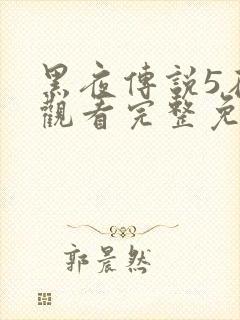 黑夜傳説5
觀看完整免
郭晨然